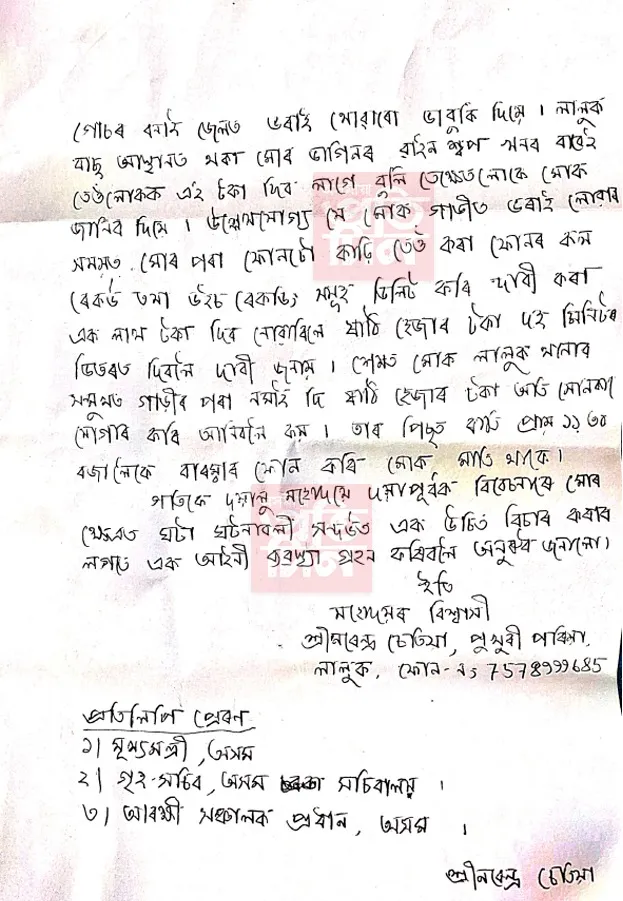 গোচৰ বনাই জেলত ভৰাই থোৱাৰো ভাবুকি দিয়ে । লালুক
বাছ আস্থানত থকা মোৰ ভাগিনৰ ৱাইন শ্বপ খনৰ বাবেই
তেওঁলোকক এই টকা দিব লাগে বুলি তেখেতলোকে মোক
জানিব দিয়ে । উল্লেখযোগ্য যে মোক গাড়ীত ভৰাই লোৱাৰ
সময়ত মোৰ পৰা ফোনটো কাঢ়ি তেওঁ কৰা ফোনৰ কল
ৰেকৰ্ড তথা ভইচ ৰেকৰ্ডিং সমূহ ডিলিট কৰি দাবী কৰা
এক লাখ টকা দিব নোৱাৰিলে ষাঠি হেজাৰ টকা দহ মিনিটৰ
ভিতৰত দিবলৈ দাবী জনায় । শেষত মোক লালুক থানাৰ
সন্মুখত গাড়ীৰ পৰা নমাই দি ষাঠি হেজাৰ টকা অতি সোনকালে
যোগাৰ কৰি আনিবলৈ কয় । তাৰ পিছত ৰাতি প্ৰায় ১১.৩০
বজালৈকে বাৰম্বাৰ ফোন কৰি মোক মাতি থাকে ।
গতিকে দয়ালু মহোদয়ে দয়াপূৰ্বক বিবেচনাৰে মোৰ
ক্ষেত্ৰত ঘটা ঘটনাৱলী সন্দৰ্ভত এক উচিত বিচাৰ কৰাৰ
লগতে এক আইনী ব্যৱস্থা গ্ৰহন কৰিবলৈ অনুৰোধ জনালো ।
ইতি
মহোদয়ৰ বিশ্বাসী
শ্ৰীনৰেন্দ্ৰ চেতিয়া, পুখুৰী পৰিয়া,
লালুক, ফোন-নং 7578999685
প্ৰতিলিপি প্ৰেৰণ
১| মূখ্যমন্ত্ৰী, অসম
২| গৃহ সচিব, অসম সচিবালয় ।
৩| আৰক্ষী সঞ্চালক প্ৰধান, অসম ।
শ্ৰীনৰেন্দ্ৰ চেতিয়া
প্ৰতি
দিন
প্ৰতি
দিন